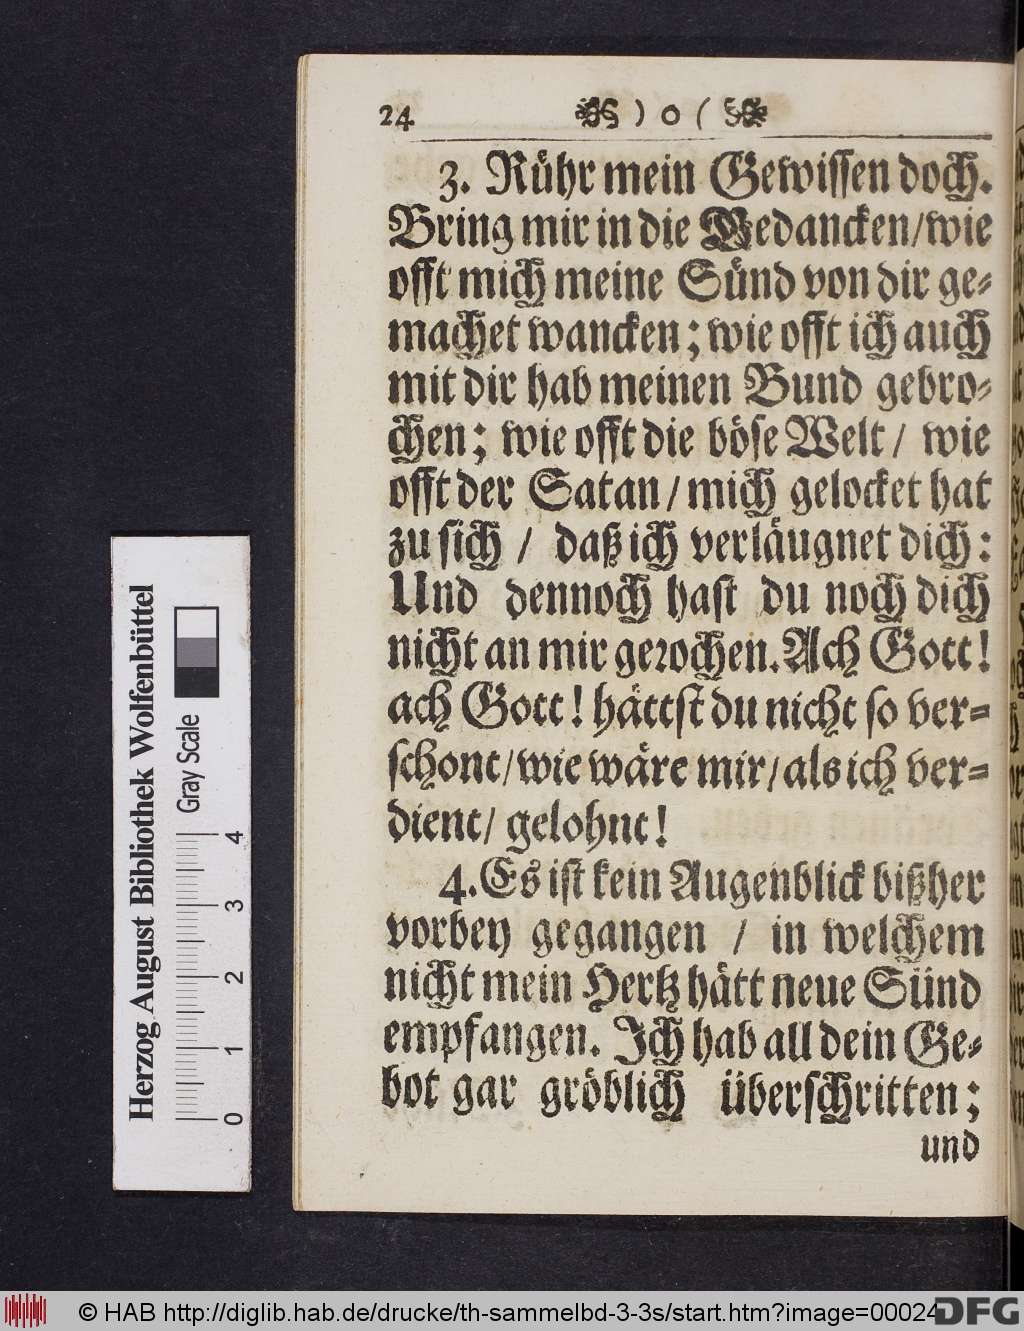 24 ) o (
3. Rühr mein Gewissen doch.
Bring mir in die Gedancken/wie
offt mich meine Sünd von dir ge-
machet wancken; wie offt ich auch
mit dir hab meinen Bund gebro-
chen; wie offt die böse Welt / wie
offt der Satan/mich gelocket hat
zu sich / daß ich verläugnet dich:
Und dennoch hast du noch dich
nicht an mir gerochen. Ach Gott!
ach Gott! hättst du nicht so ver-
schont/wie wäre mir/als ich ver-
dient/ gelohnt!
4. Es ist kein Augenblick bißher
vorbey gegangen / in welchem
nicht mein Hertz hätt neue Sünd
empfangen. Ich hab all dein Ge-
bot gar gröblich überschritten;
und
Herzog August Bibliothek Wolfenbüttel
Gray Scale
0 1 2 3 4
© HAB http://diglib.hab.de/drucke/th-sammelbd-3-3s/start.htm?image=00024
DFG